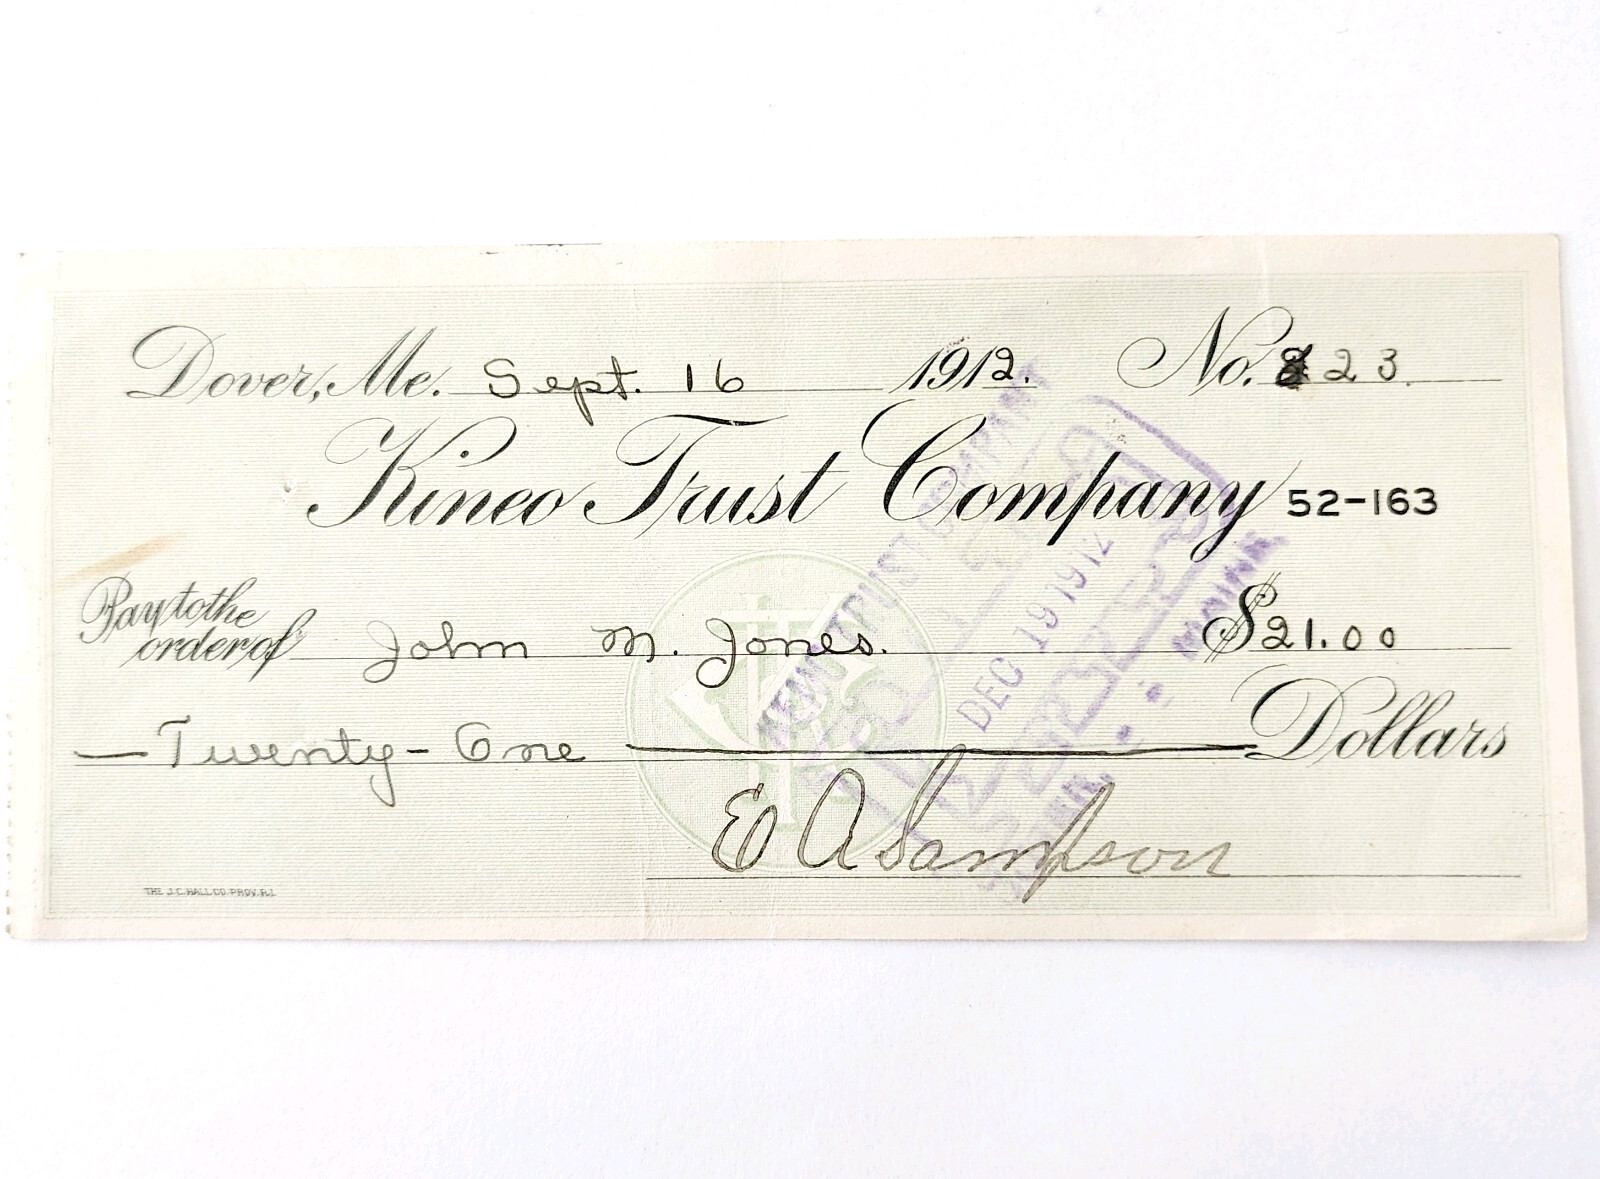 Dover, Me. Sept. 16 1912. No. 823.
Kineo Trust Company 52-163
Pay to the
order of John M. Jones. $21.00
Twenty-One Dollars
E A Sampson
THE J.C. HALL CO. PROV. R.I.
KINEO TRUST COMPANY
PAID
DEC 19 1912
DOVER, MAINE